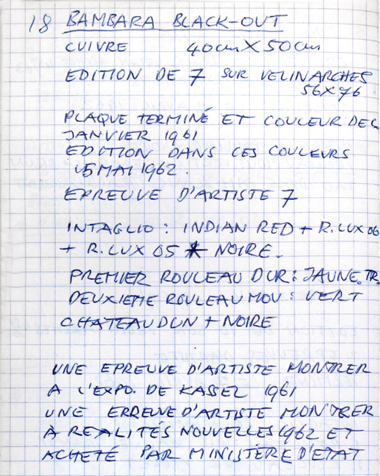 18 BAMBARA BLACK-OUT
CUIVRE 40cm X 50cm
EDITION DE 7 SUR VELIN ARCHES
56X76
PLAQUE TERMINÉ ET COULEUR DEC
JANVIER 1961
EDITION DANS CES COULEURS
15 MAI 1962.
EPREUVE D'ARTISTE 7
INTAGLIO : INDIAN RED + R. LUX 06
+ R. LUX 05 * NOIRE.
PREMIER ROULEAU DUR : JAUNE. TR.
DEUXIEME ROULEAU MOU : VERT
CHATEAUDUN + NOIRE
UNE EPREUVE D'ARTISTE MONTRER
A L'EXPO. DE KASSEL 1961
UNE ERREUVE D'ARTISTE MONTRER
A REALITÉS NOUVELLES 1962 ET
ACHETÉ PAR MINISTERE D'ETAT